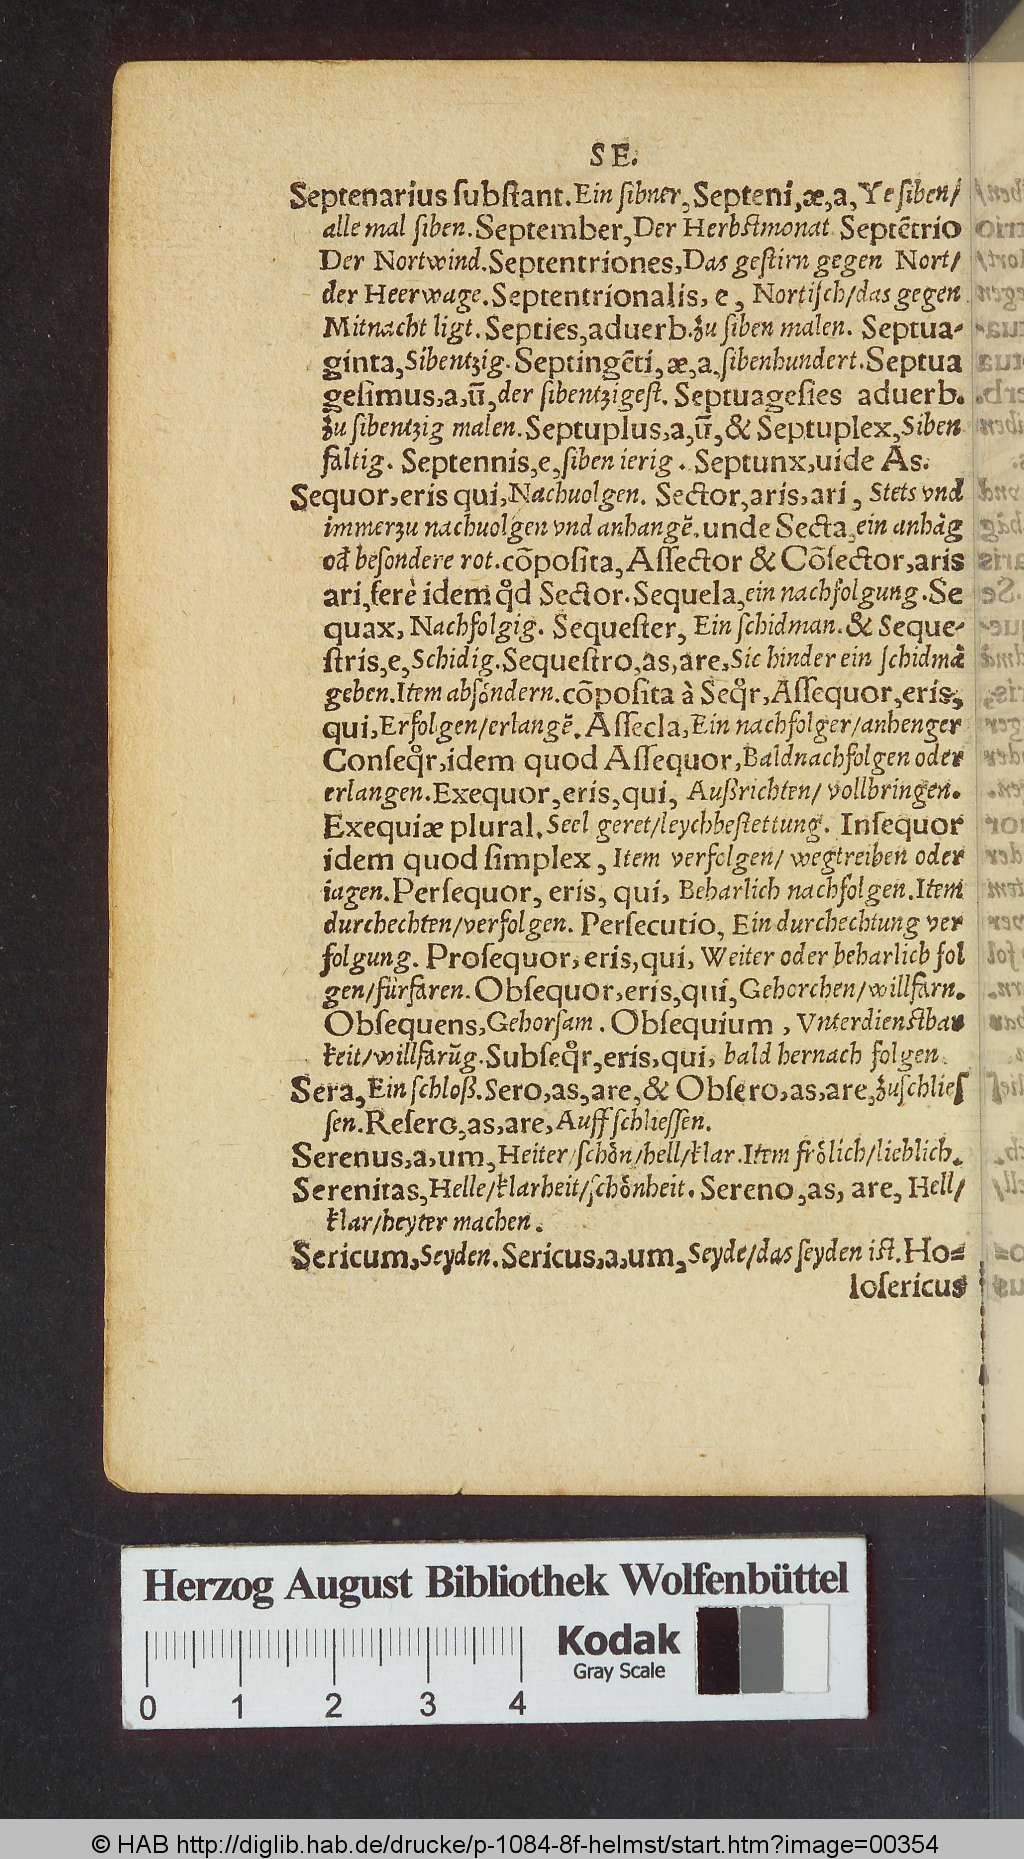 SE.
Septenarius ſubſtant. Ein ſibner, Septeni, æ, a, Ye ſiben/
alle mal ſiben. September, Der Herbſtmonat Septẽtrio
Der Nortwind. Septentriones, Das geſtirn gegen Nort/
der Heerwage. Septentrionalis, e, Nortiſch/das gegen
Mitnacht ligt. Septies, aduerb. zu ſiben malen. Septua-
ginta, Sibentzig. Septingẽti, æ, a, ſibenhundert. Septua
geſimus, a, ũ, der ſibentzigeſt. Septuageſies aduerb.
zu ſibentzig malen. Septuplus, a, ũ, & Septuplex, Siben
faltig. Septennis, e, ſiben ierig. Septunx, uide As.
Sequor, eris qui, Nachuolgen. Sector, aris, ari, Stets vnd
immerzu nachuolgen vnd anhangẽ. unde Secta, ein anhãg
od̃ beſondere rot. cõpoſita, Aſſector & Cõſector, aris
ari, ferè idem qd̊ Sector. Sequela, ein nachfolgung. Se
quax, Nachfolgig. Sequeſter, Ein ſchidman. & Seque-
ſtris, e, Schidig. Sequeſtro, as, are, Sic hinder ein ſchidmã
geben. Item abſoͤndern. cõpoſita à Seqr̊, Aſſequor, eris,
qui, Erfolgen/erlangẽ. Aſſecla, Ein nachfolger/anhenger
Conſeqr̊, idem quod Aſſequor, Baldnachfolgen oder
erlangen. Exequor, eris, qui, Außrichten/ vollbringen.
Exequiæ plural. Seel geret/leychbeſtettung. Inſequor
idem quod ſimplex, Item verfolgen/ wegtreiben oder
iagen. Perſequor, eris, qui, Beharlich nachfolgen. Item
durchechten/verfolgen. Perſecutio, Ein durchechtung ver
folgung. Proſequor, eris, qui, Weiter oder beharlich fol
gen/fürfaren. Obſequor, eris, qui, Gehorchen/willfarn.
Obſequens, Gehorſam. Obſequium, Vnterdienſtbar
keit/willfarũg. Subſeqr̊, eris, qui, bald hernach folgen.
Sera, Ein ſchloß. Sero, as, are, & Obſero, as, are, Zuſchlieſ
ſen. Reſero, as, are, Auff ſchlieſſen.
Serenus, a, um, Heiter/ſchoͤn/hell/klar. Item froͤlich/lieblich.
Serenitas, Helle/klarheit/ſchoͤnheit. Sereno, as, are, Hell/
klar/heyter machen.
Sericum, Seyden. Sericus, a, um, Seyde/das ſeyden iſt. Ho-
loſericus
Herzog August Bibliothek Wolfenbüttel
Kodak
Gray Scale
0 1 2 3 4
© HAB http://diglib.hab.de/drucke/p-1084-8f-helmst/start.htm?image=00354